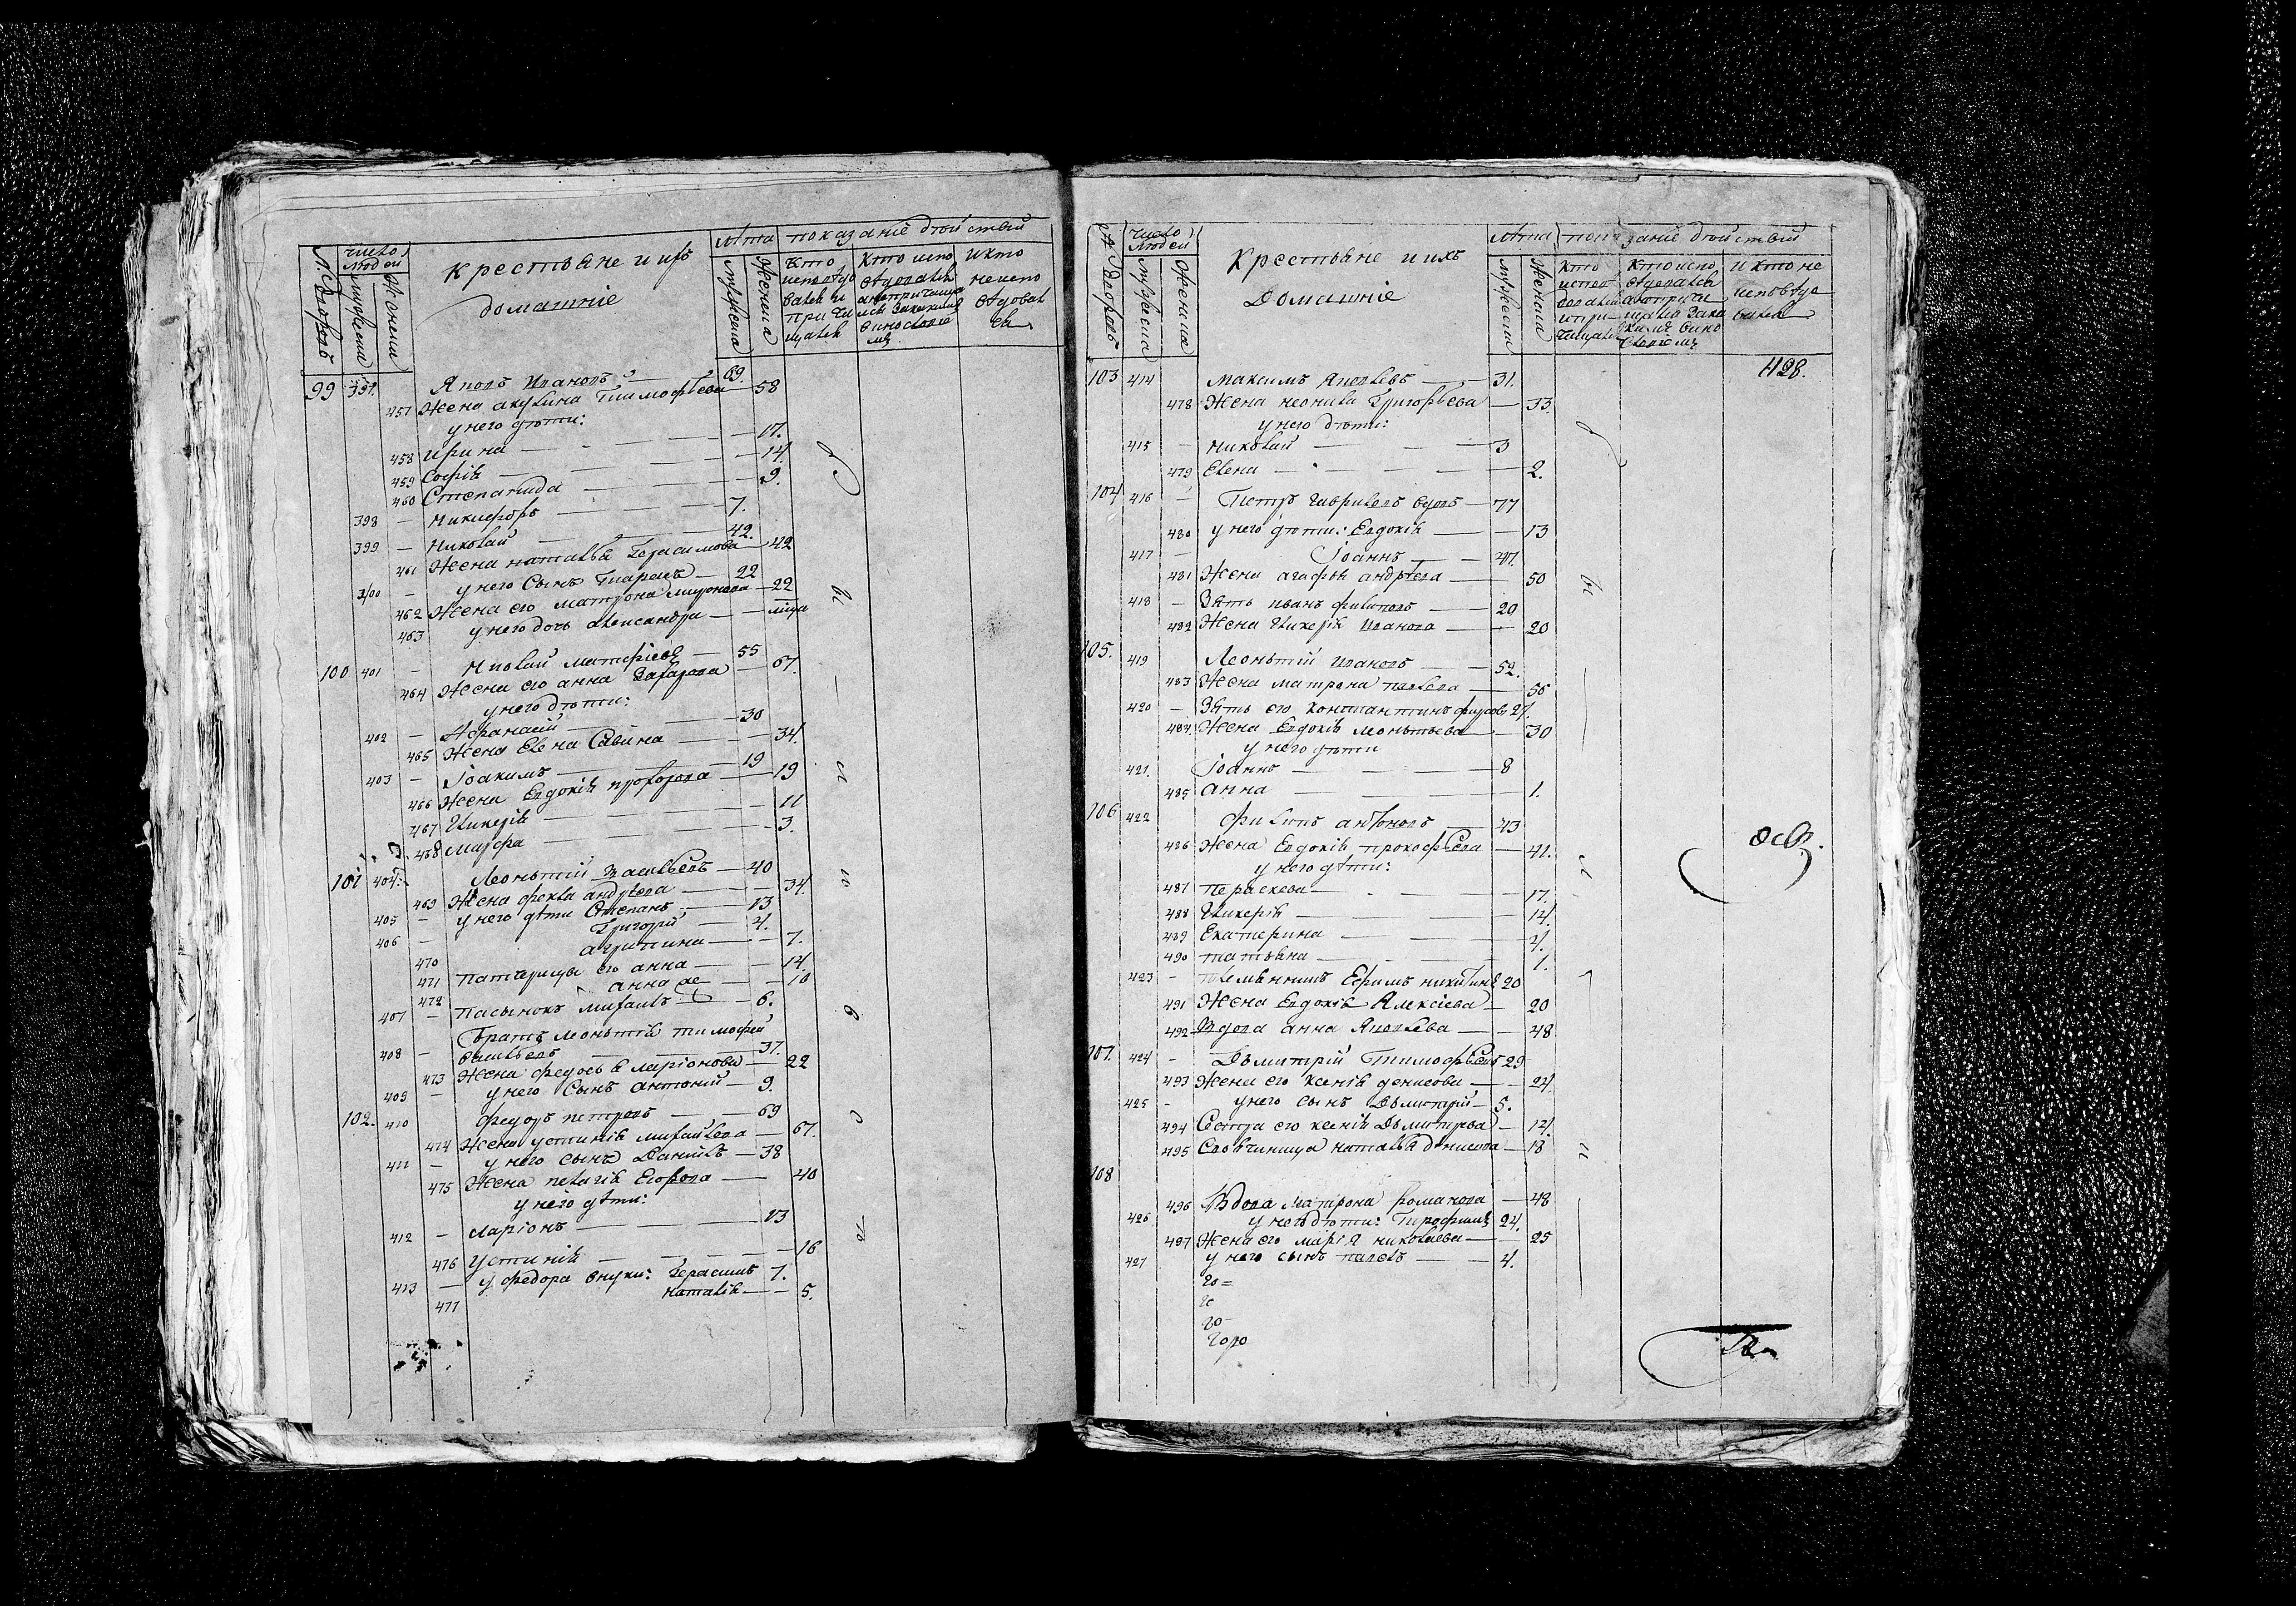 № дворовъ
число людей
мужеска
женска
крестьяне и ихъ
домашніе
лѣта
мужеска
женска
показаніе дѣйствій
кто исповѣдовался и причищался
кто исповѣдовался а не причащался за какимъ винословіемъ
и кто не исповѣдовался
99 397. Яковъ Ивановъ — 69.
457 Жена акулина Тимофѣева — 58
у него дѣти:
458 Ирина — 17.
459 Софія — 14.
460 Степанида — 9.
398 — Никифоръ — 7.
399 — Николай — 42.
461 Жена наталья Герасимова — 42
400 — у него Сынъ Тарасъ — 22
462 Жена его матрона миронова — 22
463 у него дочь александра —
100 401 — матфѣевъ — 55
464 Жена его анна Захарова — 67.
у него дѣти:
402 — Афанасій — 30
465 Жена Елена Савина — 34.
403 — Іоакимъ — 19
466 Жена Евдокія прохорова — 19
467 Гликерія — 11
468 марфа — 3.
101 404. Леонтій Васильевъ — 40
469 Жена фекла андрѣева — 34.
405 — у него дѣти Степанъ — 13
406 — Григорій — 4.
470 агрипина — 7.
471 патчерицы его анна — 14.
472 анна же — 10
407 — пасынокъ михаилъ — 6.
Братъ леонтія тимофей
408 — васильевъ — 37.
473 Жена федосья ларіонова — 22
409 — у него Сынъ антоній — 9
102. 410 федоръ петровъ — 69
474 Жена устинія михайлова — 67.
411 — у него сынъ Даніилъ — 38
475 Жена пелагія Егорова — 40
у него дѣти:
412 — Ларіонъ — 13
476 Устинія — 16
413 — у федора внуки: Герасимъ 7.
477 наталія — 5.
№ дворовъ
число людей
мужеска
женска
Крестьяне и ихъ
Домашніе
лѣта
мужеска
женска
показаніе дѣйствій
кто исповѣдовался и причищался
кто исповѣдовался а не причищался за какимъ винословіемъ
и кто не исповѣдовался
428.
103 414 максимъ Яковлевъ — 31.
478 Жена неонила Григорьева — 33.
у него дѣти:
415 — николай — 3
479 Елена — 2.
104 416 — Петръ гавриловъ вдовъ — 77
480 у него дѣти: Евдокія — 13
417 — Іоаннъ — 47.
481 Жена агафья андрѣева — 50
418 — Зять иванъ филиповъ — 20
482 Жена Гликерія Иванова — 20
105. 419 Леонтій ивановъ — 52.
483 Жена матрона павлова — 55
420 — Зять его константинъ фирсовъ 27.
484. Жена Евдокія леонтьева — 30
у него дѣти
421. Іоаннъ — 8
485 анна — 1.
106 422 филипъ антоновъ — 43
486 Жена Евдокія прокофьева — 41.
у него дѣти:
487 Пераскева — 17.
488 Гликерія — 14.
489 Екатерина — 4.
490 татьяна — 1.
423 — племянникъ Ефимъ никитинъ 20
491 Жена Евдокія Алексіева — 20
492 Вдова анна Яковлева — 48
107. 424 — Дьмитрій Тимофѣевъ 29
493 Жена его ксенія денисова — 24.
425 — у него сынъ Дьмитрій — 5.
494 Сестра его ксенія Дьмитрева — 14.
495 Своячиница наталья денисова — 18
108
496 Вдова матрона романова — 48
426 у нея дѣти: Трофимъ 24.
497 Жена его марія николаева — 25
427 у него сынъ павелъ — 4.